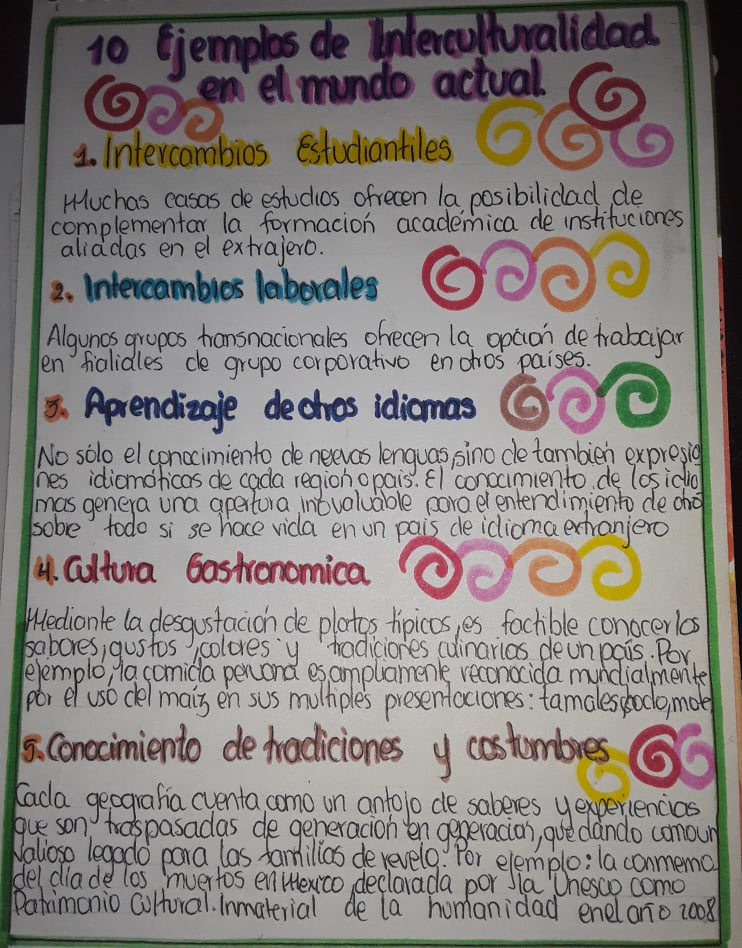 10 Ejemplos de Interculturalidad
en el mundo actual.
1. Intercambios Estudiantiles
Muchas casas de estudios ofrecen la posibilidad de
complementar la formación académica de instituciones
aliadas en el extrajero.
2. Intercambios laborales
Algunos grupos transnacionales ofrecen la opción de trabajar
en fialiales de grupo corporativo en otros países.
3. Aprendizaje de otros idiomas
No sólo el conocimiento de nuevas lenguas, sino de también expresio
nes idiomáticas de cada region o pais. El conocimiento de los idio
mas genera una apertura invaluable para el entendimiento de otro
sobre todo si se hace vida en un país de idioma extranjero
4. Cultura Gastronomica
Mediante la desgustación de platos típicos, es factible conocer los
sabores, gustos, colores y tradiciones culinarias de un país. Por
ejemplo, la comida peruana es ampliamente reconocida mundialmente
por el uso del maíz en sus multiples presentaciones: tamales, mote
5. Conocimiento de tradiciones y costumbres
Cada geografía cuenta como un antojo de saberes y experiencias
que son traspasadas de generación en generación, quedando como un
valioso legado para las familias de revelo. Por ejemplo: la conmemo
del dia de los muertos en Mexico, declarada por la Unesco como
Patrimonio Cultural. Inmaterial de la humanidad en el año 2008